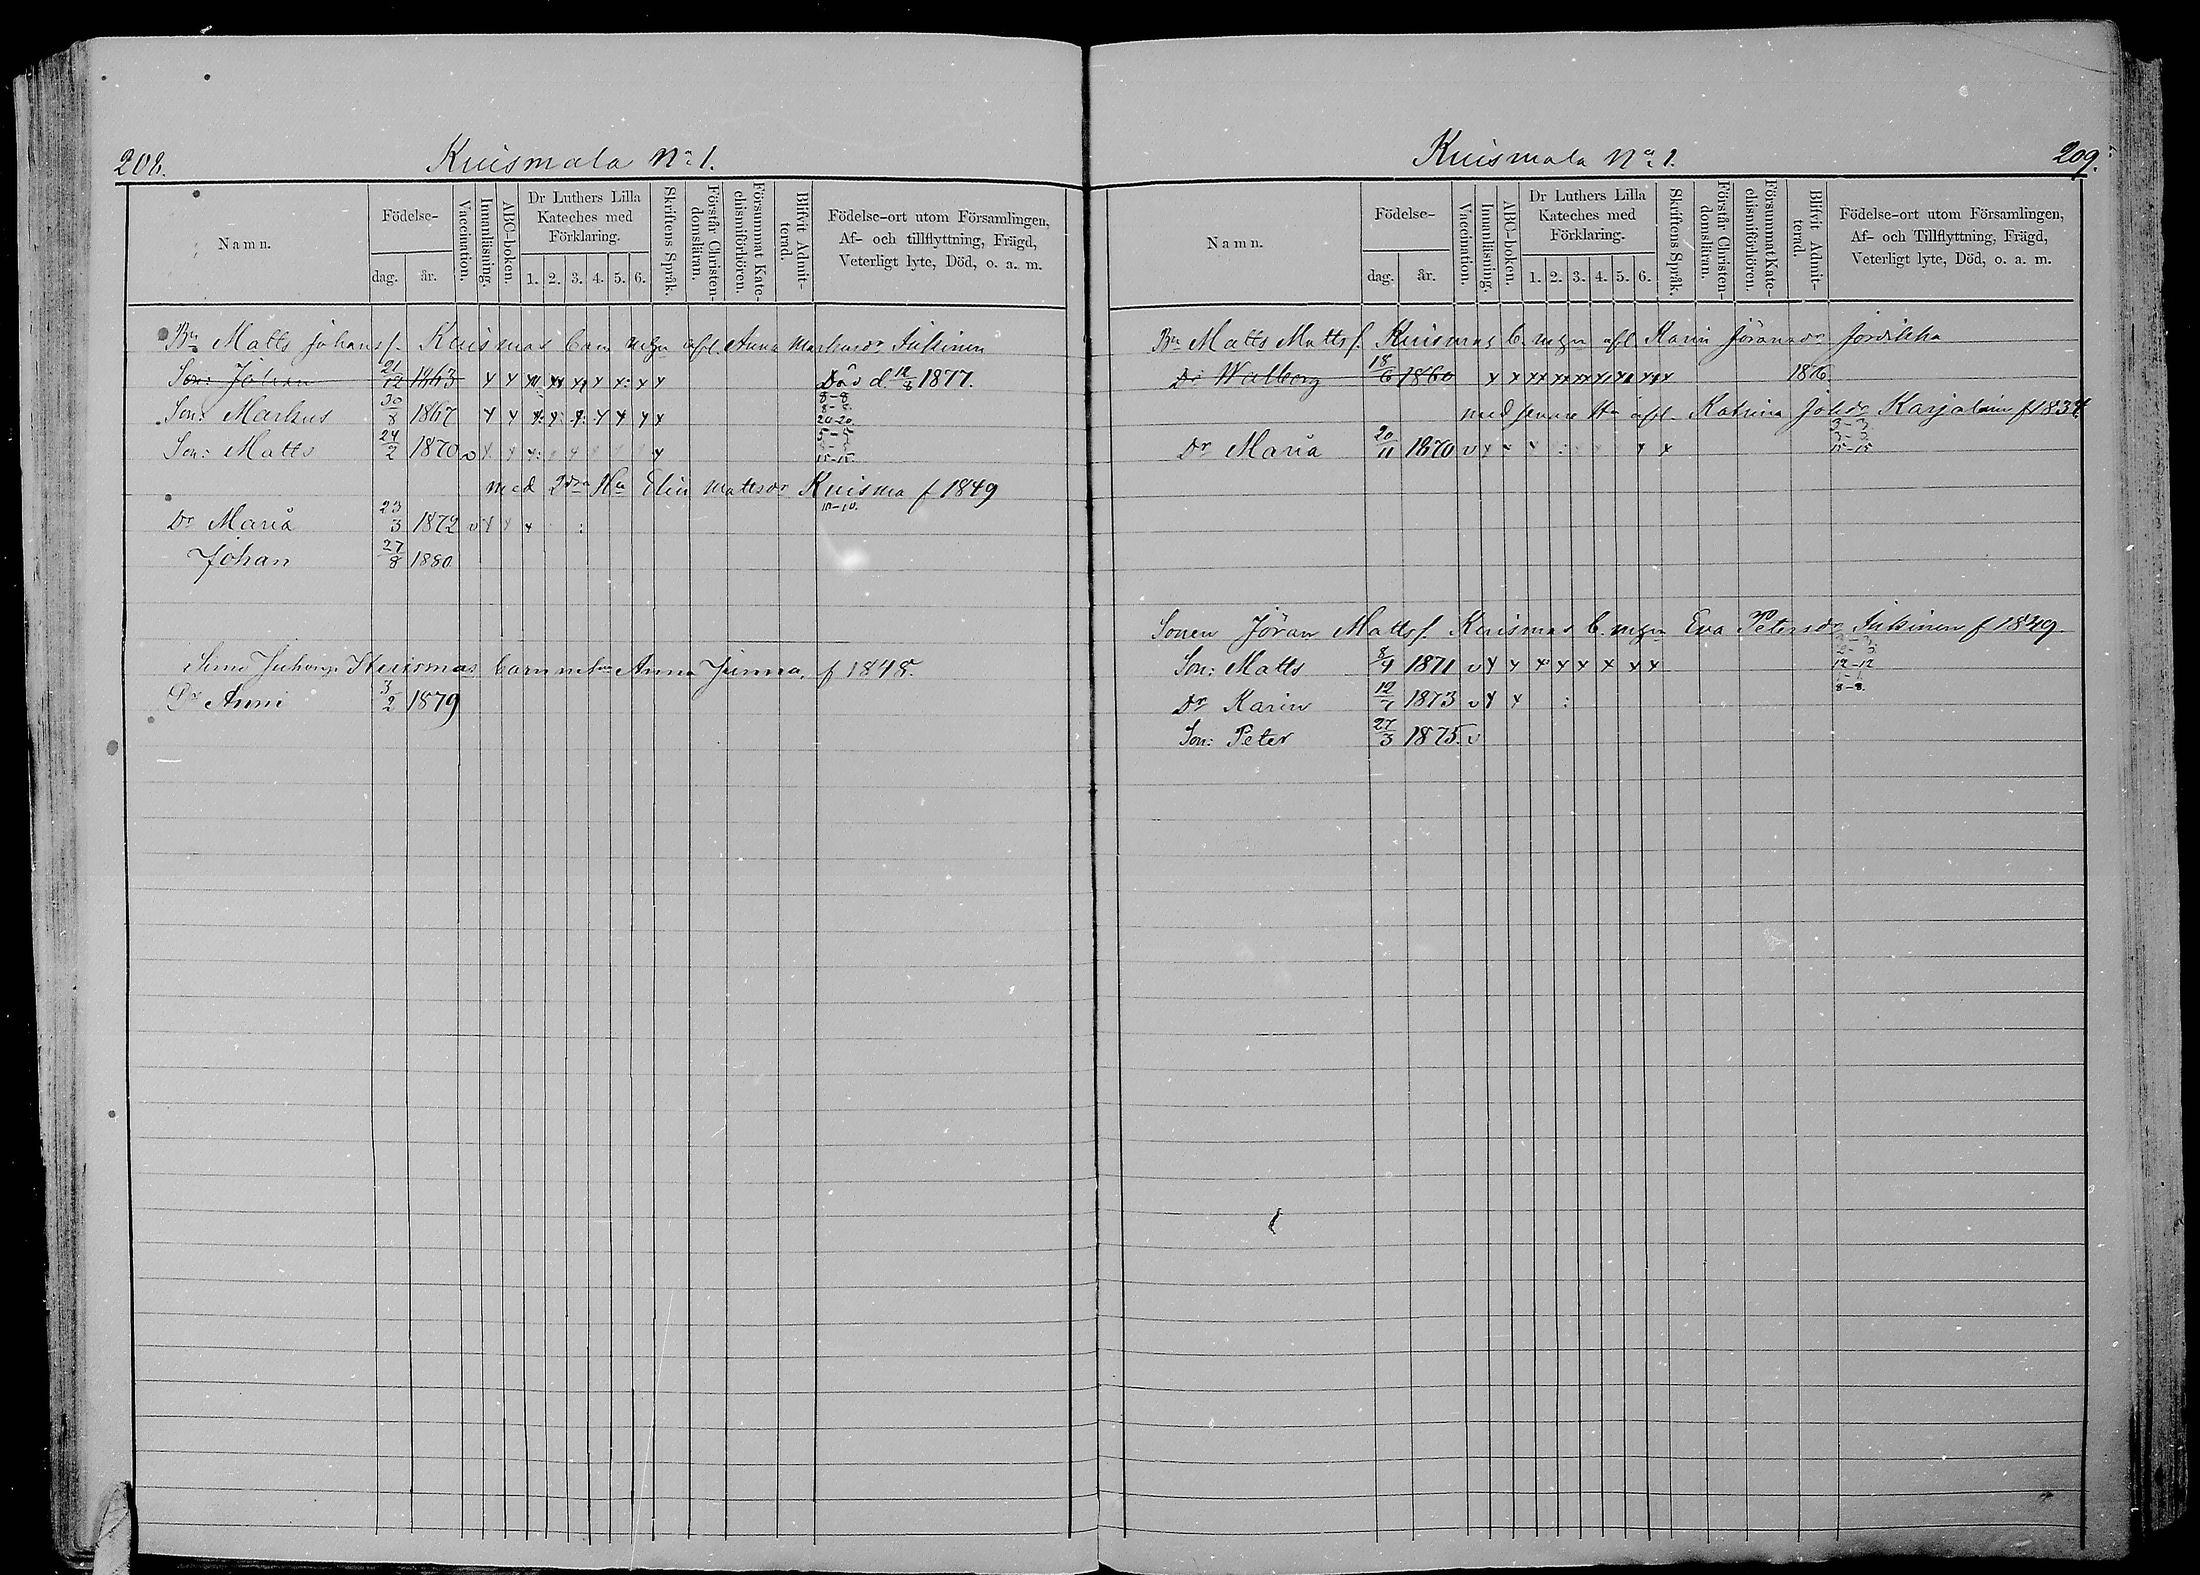 208.
Kuismala No 1.
Namn.
Födelse-
dag.
år.
Vaccination.
Innanläsning.
ABC-boken.
Dr Luthers Lilla Kateches med Förklaring.
1. 2. 3. 4. 5. 6.
Skriftens Språk.
Förstår Christendomsläran.
Försummat Katechismiförhören.
Blifvit Admitterad.
Födelse-ort utom Församlingen,
Af- och tillflyttning, Frägd,
Veterligt lyte, Död, o. a. m.
Bn Matts Johans f. Kuismas barn m afl. Anna Markusdr
Son: Johan 21/12 1863 x x x x x x x Död d 1877.
8-8
Son: Markus 30/8 1867 x x x: x: x: x x x x 20-20
5-5
Son: Matts 24/2 1870 v x x x: x x 15-15
med 2dra Hu Elin Mattsdr Kuisma f 1849
Dr Maria 23/3 1872 v x x x : 10-10.
Johan 27/8 1880
Simo Juhonp. Kuismas barn m hu Anna Jinna, f 1848.
Dr Anni 3/2 1879
209.
Kuismala No 1.
Namn.
Födelse-
dag.
år.
Vaccination.
Innanläsning.
ABC-boken.
Dr Luthers Lilla Kateches med Förklaring.
1. 2. 3. 4. 5. 6.
Skriftens Språk.
Förstår Christendomsläran.
Försummat Katechismiförhören.
Blifvit Admitterad.
Födelse-ort utom Församlingen,
Af- och Tillflyttning, Frägd,
Veterligt lyte, Död, o. a. m.
Bn Matts Matts f. Kuismas b. m afl Karin Jöransdr
Dr Walborg 18/6 1860 x x xx xx xx xx 1876.
med senare Hu afl Katrina Johdr Karjalain f 1834
3-3
3-3
Dr Maria 20/11 1870 v x x x : x x 15-15
Sonen Jöran Matts f. Kuismas b. m Eva Petersdr f 1849
Son: Matts 8/9 1871 v x x x x x x x x 12-12
Dr Karin 12/7 1873 v x x : 8-8.
Son: Peter 27/3 1875. v